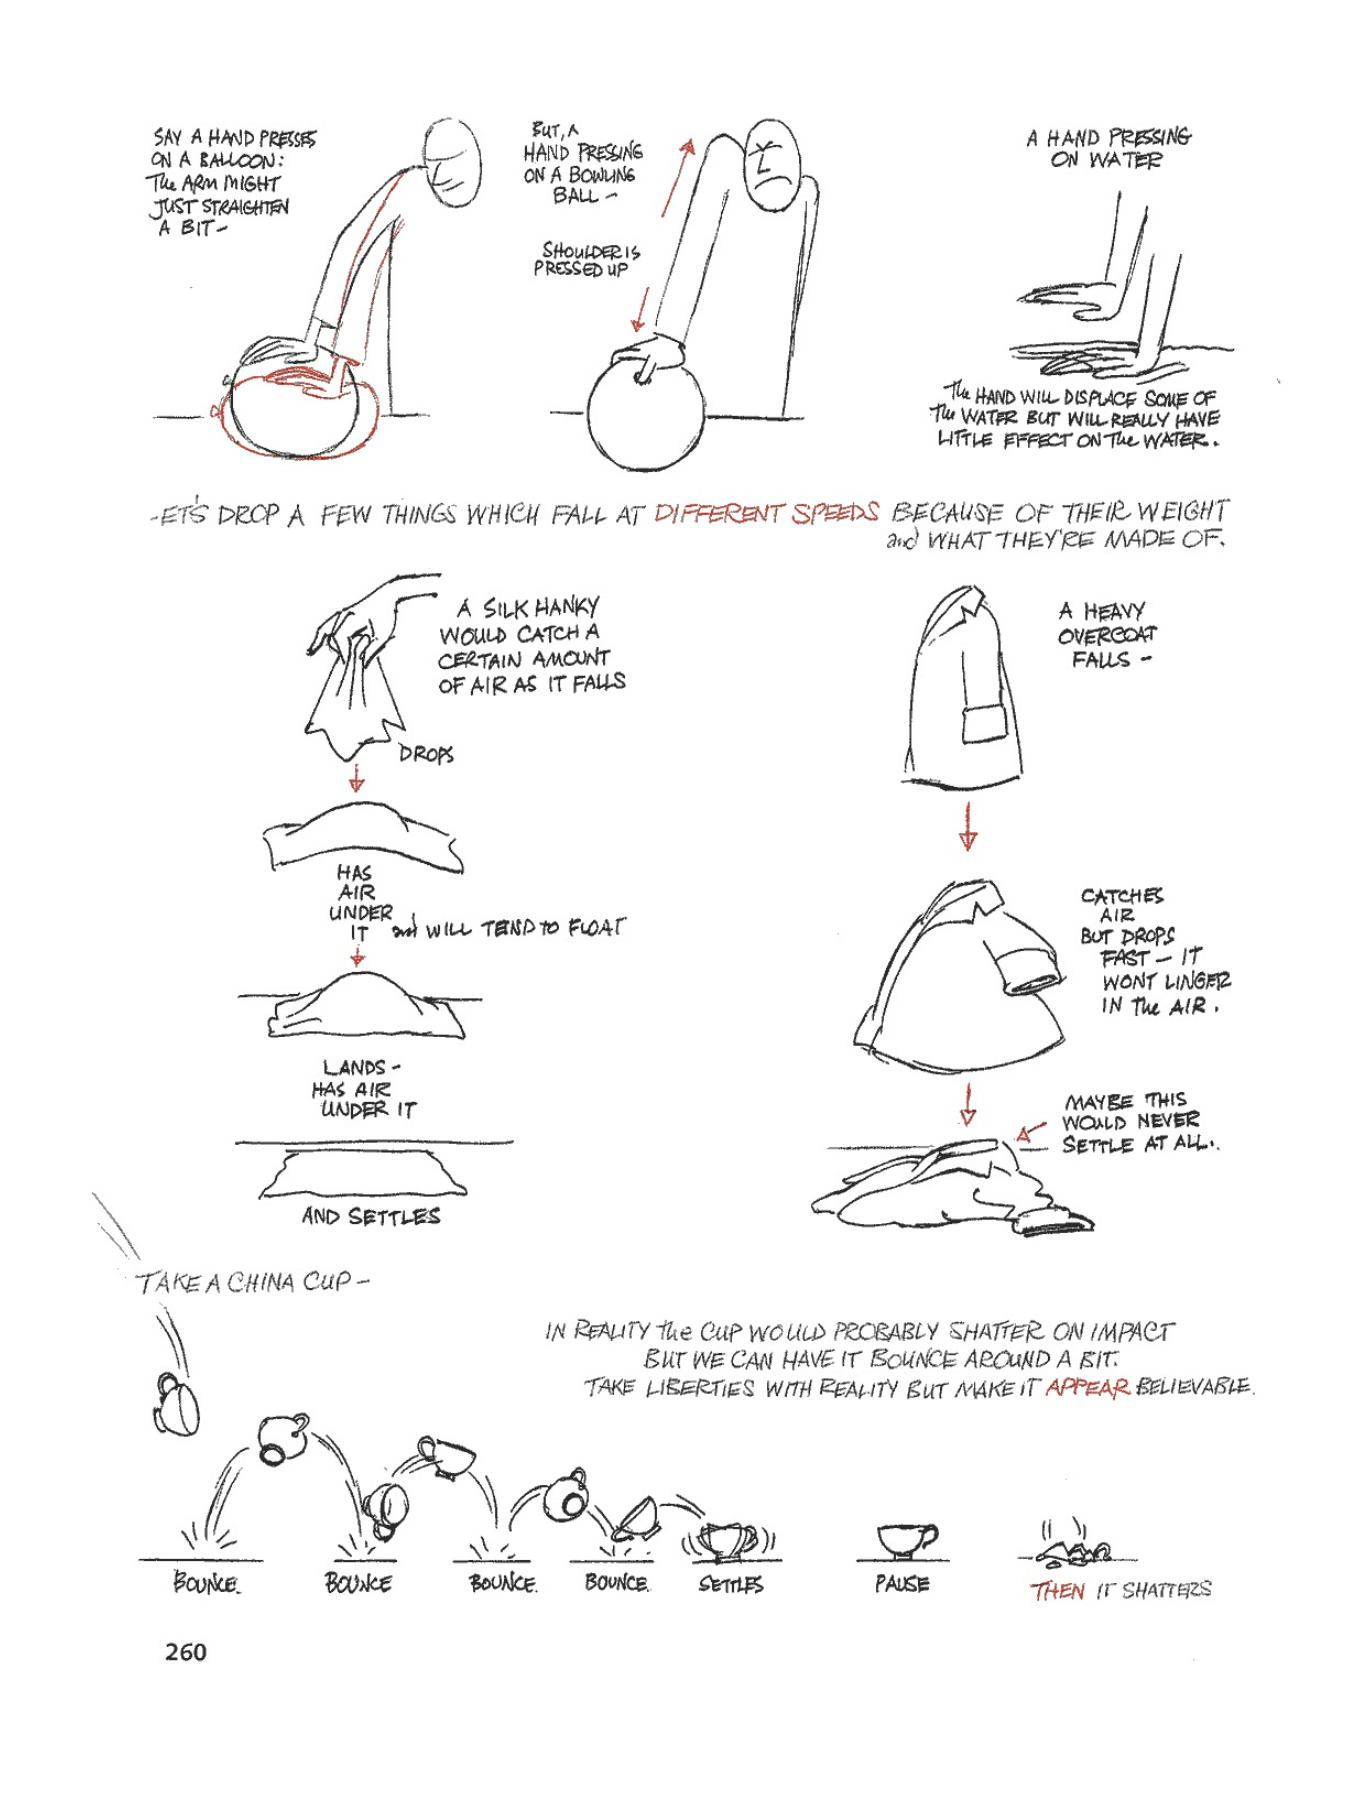 SAY A HAND PRESSES
ON A BALLOON:
The ARM MIGHT
JUST STRAIGHTEN
A BIT-
BUT, A
HAND PRESSING
ON A BOWLING
BALL -
SHOULDER IS
PRESSED UP
A HAND PRESSING
ON WATER
The HAND WILL DISPLACE SOME OF
The WATER BUT WILL REALLY HAVE
LITTLE EFFECT ON The WATER.
-ET'S DROP A FEW THINGS WHICH FALL AT DIFFERENT SPEEDS BECAUSE OF THEIR WEIGHT
and WHAT THEY'RE MADE OF.
A SILK HANKY
WOULD CATCH A
CERTAIN AMOUNT
OF AIR AS IT FALLS
DROPS
HAS
AIR
UNDER
IT and WILL TEND to FLOAT
LANDS -
HAS AIR
UNDER IT
AND SETTLES
A HEAVY
OVERCOAT
FALLS -
CATCHES
AIR
BUT DROPS
FAST - IT
WONT LINGER
IN The AIR.
MAYBE THIS
WOULD NEVER
SETTLE AT ALL..
TAKE A CHINA CUP -
IN REALITY The CUP WOULD PROBABLY SHATTER ON IMPACT
BUT WE CAN HAVE IT BOUNCE AROUND A BIT.
TAKE LIBERTIES WITH REALITY BUT MAKE IT APPEAR BELIEVABLE.
BOUNCE.
BOUNCE
BOUNCE.
BOUNCE.
SETTLES
PAUSE
THEN IT SHATTERS
260